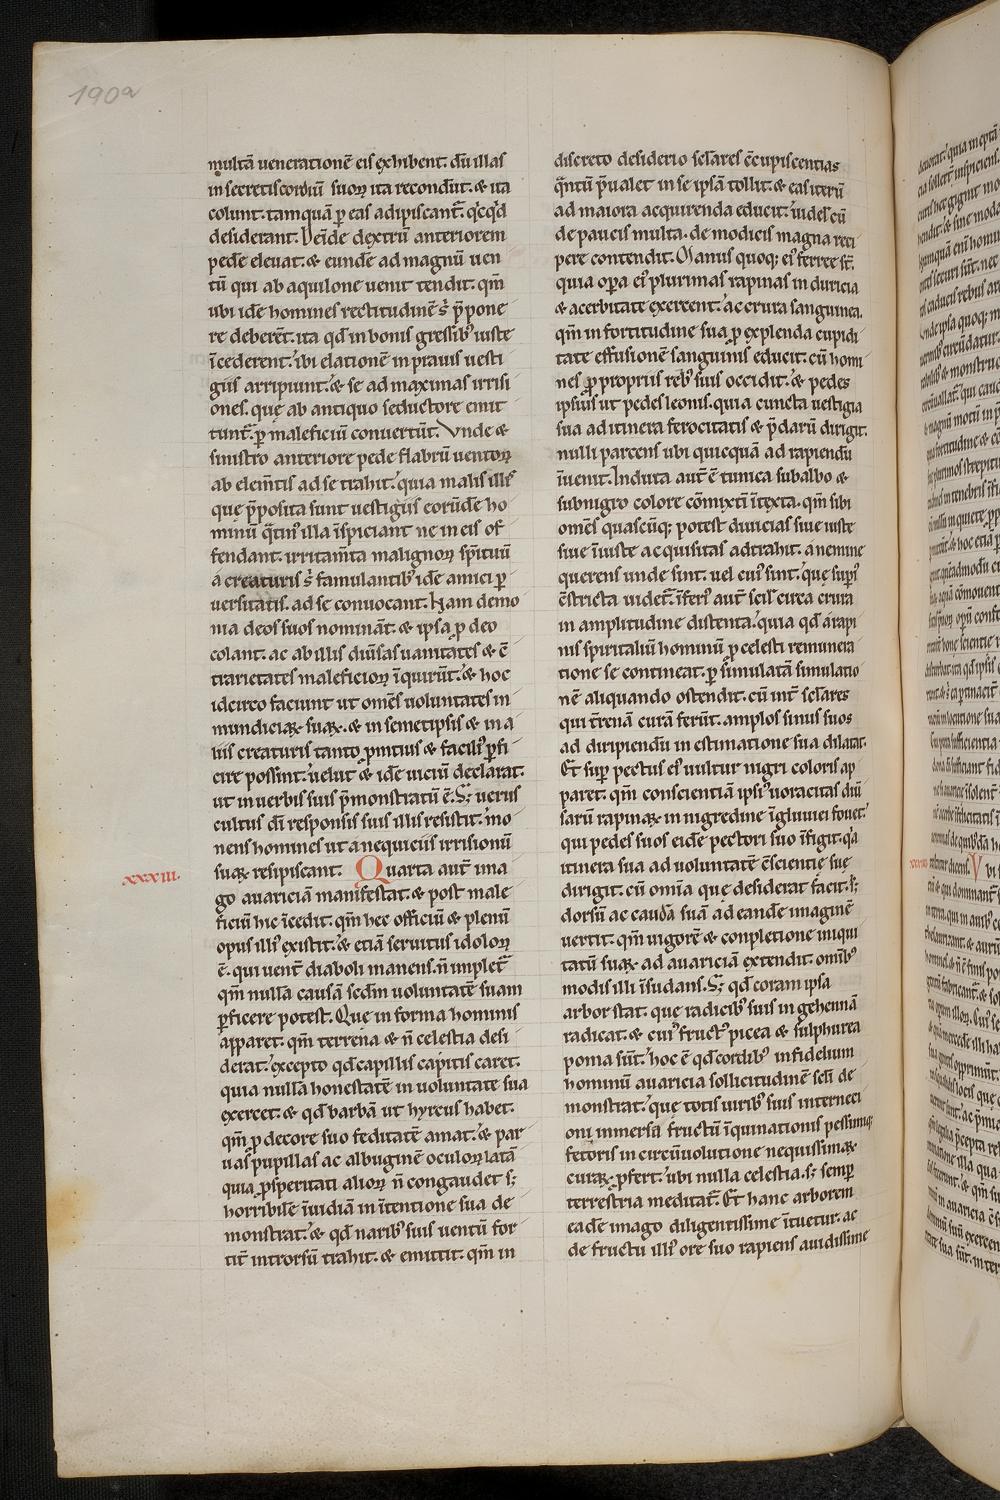 190a
multā uenerationē eis exhibent. dū illas
in secretis cordiū suoꝝ ita recondūt. & ita
colunt. tamquā ꝑ eas adipiscant̄. qͥcqͥd
desiderant. Deīde dextrū anteriorem
pedē eleuat. & eundē ad magnū uen
tū qui ab aquilone uenit tendit. qm̄
ubi idē homines rectitudinē s̄ p̄pone
re deberēt. ita qd̄ in bonis gressibꝰ iuste
īcederent. ibi elationē in prauis uesti
giis arripiunt. & se ad maximas irrisi
ones. quę ab antiquo seductore emit
tunt̄. ꝑ maleficiū conuertūt. Vnde &
sinistro anteriore pede flabrū uentoꝝ
ab elem̄tis ad se trahit. quia malis illis
que p̄posita sunt uestigiis eorūdē ho
minū qͣtinꝰ illa īspiciant ne in eis of
fendant. irritam̄ta malignoꝝ sp̄ituū
a creaturis s̄ famulantibꝰ idē amici ꝑ
uersitatis. ad se conuocant. Nam demo
nia deos suos nominānt. & ipsa ꝓ deo
colant. ac ab illis diūsas uanitates & ē
trarietates maleficioꝝ īquirūt. & hoc
idcirco faciunt ut omēs uoluntates in
mundiciaꝝ suaꝝ. & in semetipsis & in a
liis creaturis tanto ꝓmtius & faciliꝰ ꝑfi
cere possint. uelut & idē uiciū declarat.
ut in uerbis suis p̄monstratū ē. Sꝫ uerus
cultus dī responsis suis illis resistit. mo
nens homines ut a nequiciis irrisionū
suaꝝ resipiscant. Quarta aut̄ ima
xxxiii.
go auariciā manifestat. & post male
ficiū hic īcedit. qm̄ hec officiū & plenū
opus illiꝰ existit. & etiā seruitus idoloꝝ
ē. qui uent̄ diaboli manens. n̄ implet̄
qm̄ nullā causā scdm̄ uoluntatē suam
ꝑficere potest. Que in forma hominis
apparet. qm̄ terrena & n̄ celestia desi
derat. excepto qd̄ capillis capitis caret.
quia nullā honestatē in uoluntate sua
exercet. & qd̄ barbā ut hyrcus habet.
qm̄ ꝓ decore suo feditatē amat. & par
uas pupillas ac albuginē oculoꝝ latā
quia ꝓsperitati alioꝝ n̄ congaudet sꝫ
horribilē īuidiā in ītentione sua de
monstrat. & qd̄ naribꝰ suis uentū for
tit̄ introrsū trahit. & emittit. qm̄ in
discreto desiderio sclares ēcupiscentias
qͣntū p̄ualet in se ipsā tollit. & eas iterū
ad maiora acquirenda educit. uidel' cū
de paucis multa. de modicis magna reci
pere contendit. Manus quoqꝫ eiꝰ ferreę st̄.
quia oꝑa eiꝰ plurimas rapinas in duricia
& acerbitate exercent. ac crura sanguinea.
qm̄ in fortitudine sua ꝓ explenda cupidi
tate effusionē sanguinis educit. cū homi
nes ꝓ propriis rebꝰ suis occidit. & pedes
ipsius ut pedes leonis. quia cuncta uestigia
sua ad itinera ferocitatis & p̄darū dirigit.
nulli parcens ubi quicquā ad rapiendū
īuenit. Induta aut̄ ē tunica subalbo &
subnigro colore cōmixtī ītexta. qm̄ sibi
omēs quascūqꝫ potest diuicias siue iuste
siue īiuste acquisitas adtrahit. a nemine
querens unde sint. uel cuiꝰ sint. quę supiꝰ
ēstricta uidet̄. īferiꝰ aut̄ scil' circa crura
in amplitudine distenta. quia qd̄ a rapi
nis spiritaliū hominū ꝓ celesti remunera
tione se contineat. ꝑ simulatā simulatio
nē aliquando ostendit. cū int̄ sclares
qui t̄renā curā ferūt. amplos sinus suos
ad diripiendū in estimatione sua dilatat.
Et suꝑ pectus eiꝰ uultur nigri coloris ap
paret. qm̄ conscientiā ipsiꝰ uoracitas diū
sarū rapinaꝝ in nigredine īgluuiei fouet.
qui pedes suos eidē pectori suo īfigit. qͥa
itinera sua ad uoluntatē ēscientie sue
dirigit. cū omīa que desiderat facit. sꝫ
dorsū ac caudā suā ad eandē imaginē
uertit. qm̄ uigorē & conpletionē iniqui
tatū suaꝝ ad auariciā extendit. omībꝰ
modis illi īsudans. Sꝫ qd̄ coram ipsa
arbor stat. que radicibꝰ suis in gehennā
radicat. & cuiꝰ fructꝰ picea & sulphurea
poma sūt. hoc ē qd̄ cordibꝰ infidelium
hominū auaricia sollicitudinē seli de
monstrat. que totis uiribꝰ suis interneci
oni inmersa fructū īquinationis pessimiqꝫ
fetoris in circūuolutione nequissimaꝝ
curaꝝ ꝓfert. ubi nulla celestia. sꝫ semꝑ
terrestria meditat̄. Et hanc arborem
eadē imago diligentissime ītuetur. ac
de fructu illiꝰ ore suo rapiens auidissime